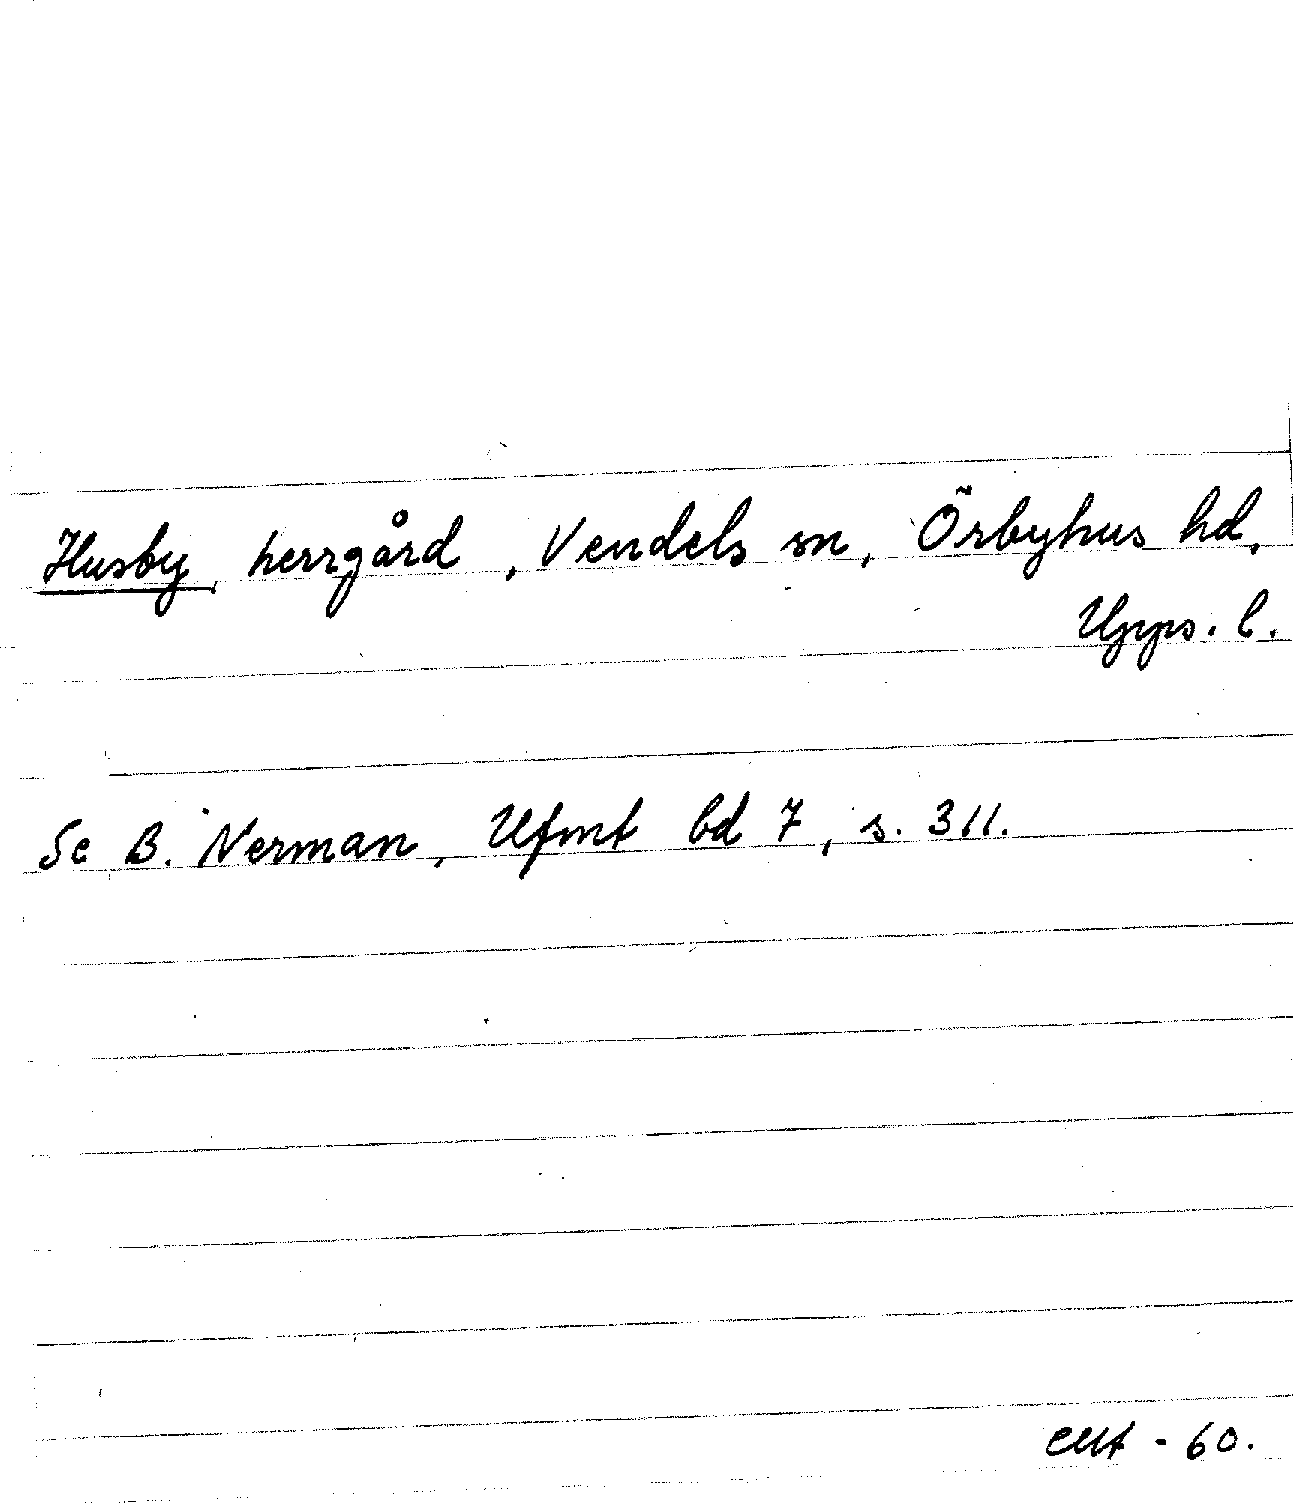 Husby, herrgård, Vendels sn, Örbyhus hd,
Upps. l.
Se B. Nerman, Ufmt bd 7, s. 311.
- 60.